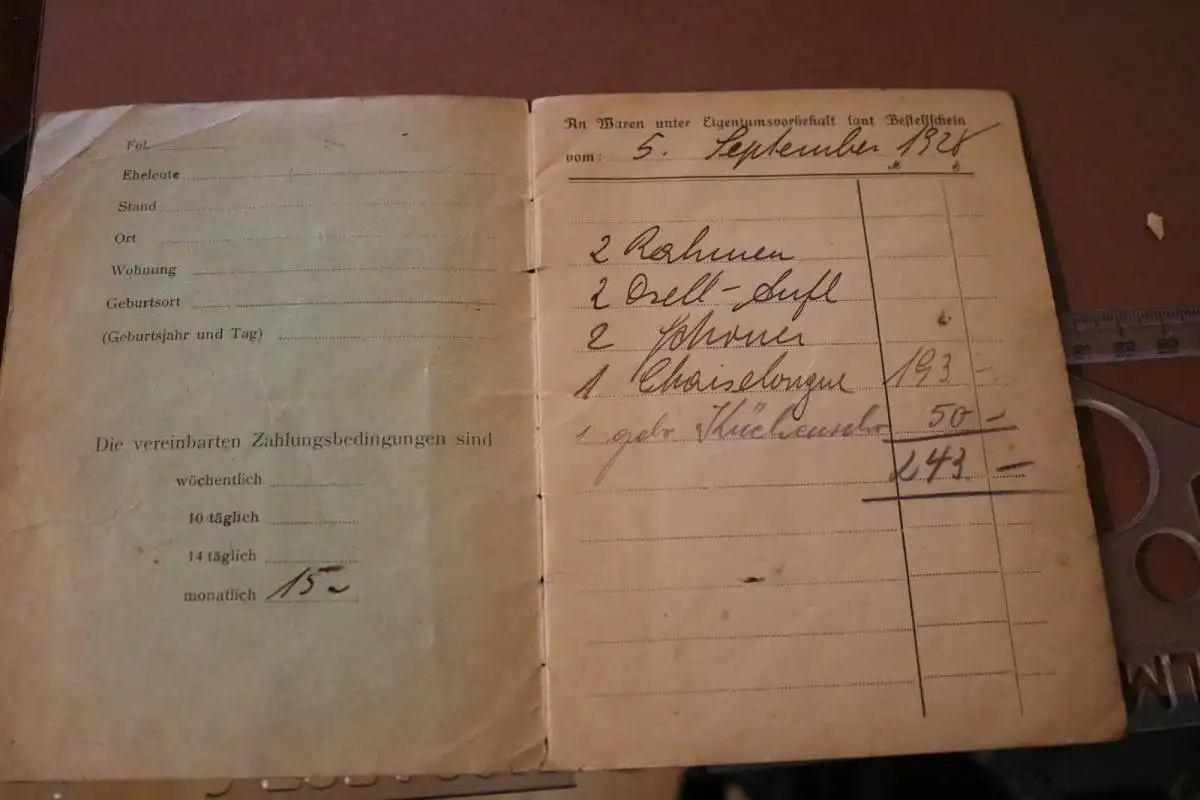 Fol.
Eheleute
Stand
Ort
Wohnung
Geburtsort
(Geburtsjahr und Tag)
Die vereinbarten Zahlungsbedingungen sind
wöchentlich
10 täglich
14 täglich
monatlich 15
An Waren unter Eigentumsvorbehalt laut Bestellschein
vom: 5. September 1928
2 Rahmen
2 Aufl
2 Schoner
1 Chaiselongue 193 -
1 gebr Küchenschr 50 -
243 -